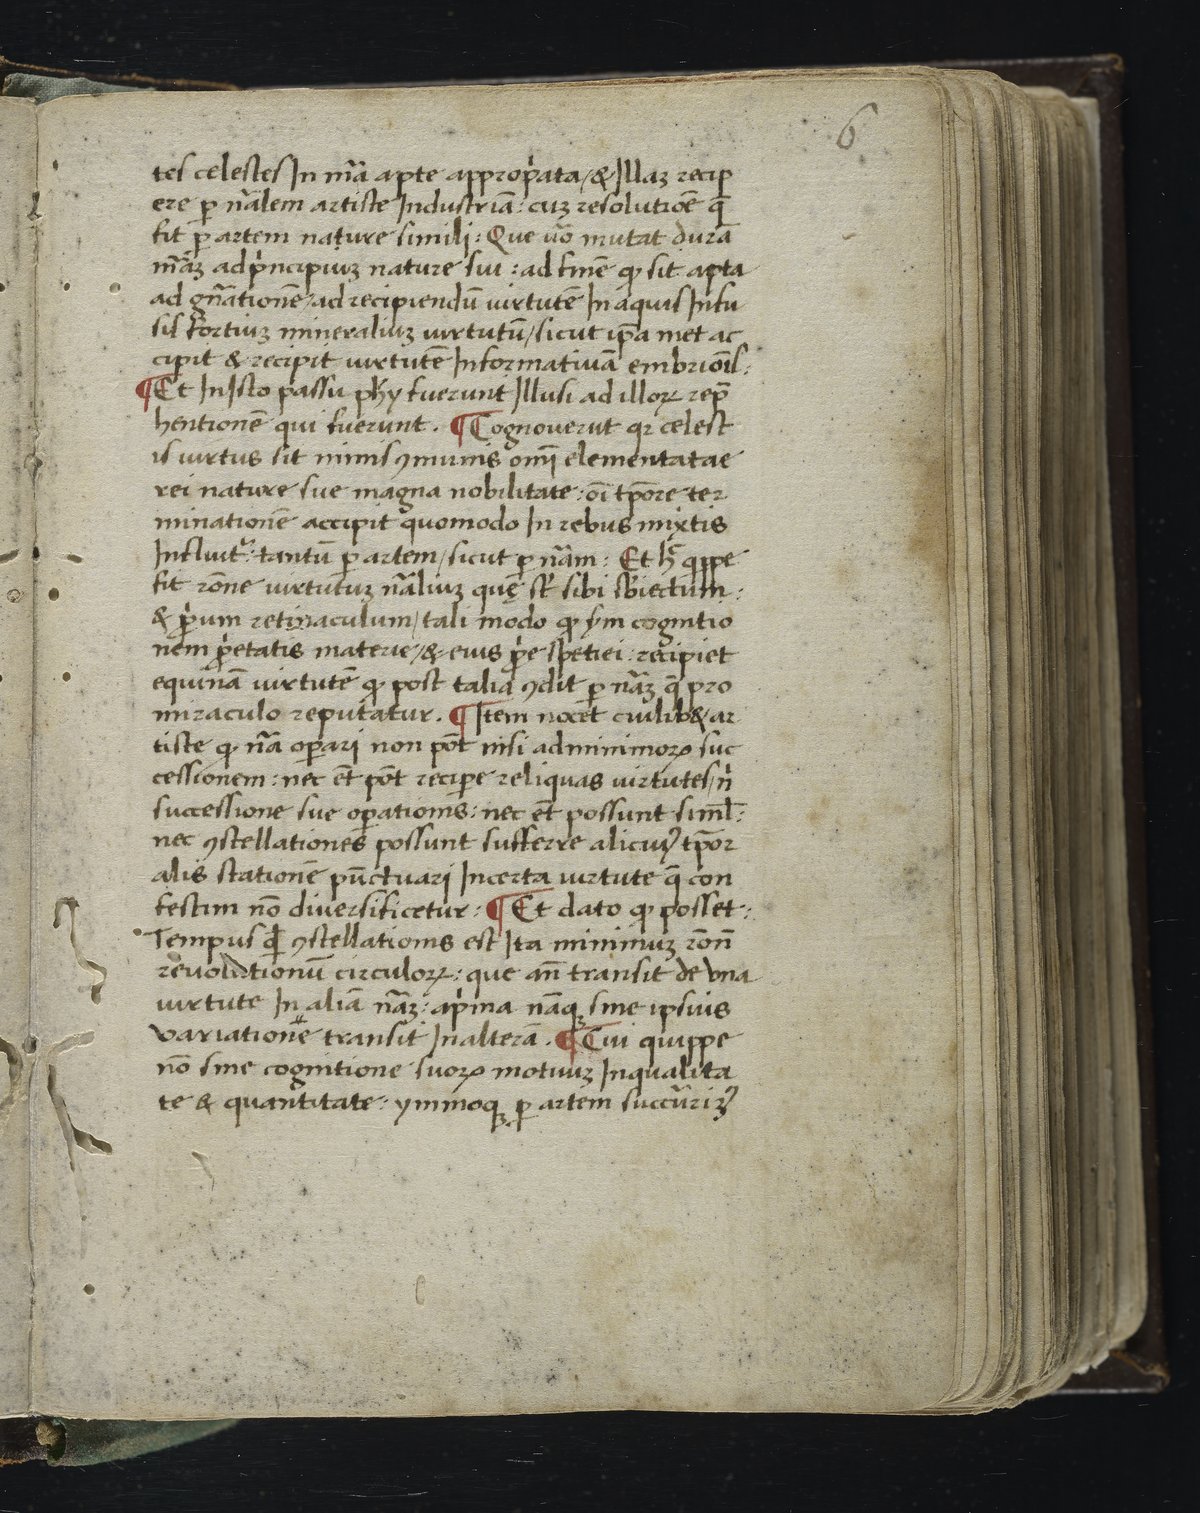 6
tes celestes In nr̃a apte appropͥata / & Illaꝫ recip
ere ꝑ nãlem artiste Industriã : cuꝫ resolutiõe q̃
fit ꝑ artem nature simili : Que uõ mutat durã
mãꝫ ad pͥncipiuꝫ nature sui : ad finẽ ꝙ sit apta
ad gñationẽ / ad recipiendũ uirtutẽ In aquis Infu
sis fortiuꝫ mineraliuꝫ uirtutũ / sicut ip̃a met ac
cipit & recipit uirtutẽ Informatiuã embriõis :
¶ Et In Isto passu phỹ fuerunt Illusi ad illoꝝ rep̃
hentionẽ qui fuerunt . ¶ Cognouerũt qꝛ celest
is uirtus sit nimis ꝯmunis om̃i elementatae
rei nature sue magna nobilitate : oĩ tp̃ore ter
minationẽ accipit quomodo In rebus mixtis
Influit᷑ : tantũ ꝑ artem / sicut ꝑ nãm : Et h̃ q̇ppe
fit rõne uirtutuꝫ nãliuꝫ quę st̃ sibi sb̃iectum :
& pͥuum retinaculum / tali modo ꝙ sm̃ cognitio
nem pͥetatis materie / & eius pͥe spetiei : recipiet
equinã uirtutẽ ꝙ post talia ꝯdit ꝑ nãꝫ q̃ pro
miraculo reputatur . ¶ Item nocet ciuilib₉ & ar
tiste ꝙ nã oꝑari non põt nisi ad minimoꝝ suc
cessionem : nec ẽt põt reciꝑe reliquas uirtutes / nͥ
successione sue oꝑationis : nec ẽt possunt simł :
nec ꝯstellationes possunt sufferre alicui₉ tp̃or
alis stationẽ pũctuari Incerta uirtute q̃ con
festim nõ diuersificetur : ¶ Et dato ꝙ posset :
Tempus qd̃ ꝯstellationis est Ita minimuꝫ rõne
reuolutionũ circuloꝝ : que añ transit de una
uirtute In aliã nãꝫ : apͥina nãqꝫ sine ipsius
uariationẽ transit In alterã . ¶ Cui quippe
nõ sine cognitione suoꝝ motuuꝫ In qualita
te & quantitate : ymmoqꝫ ꝑ artem succũrim₉